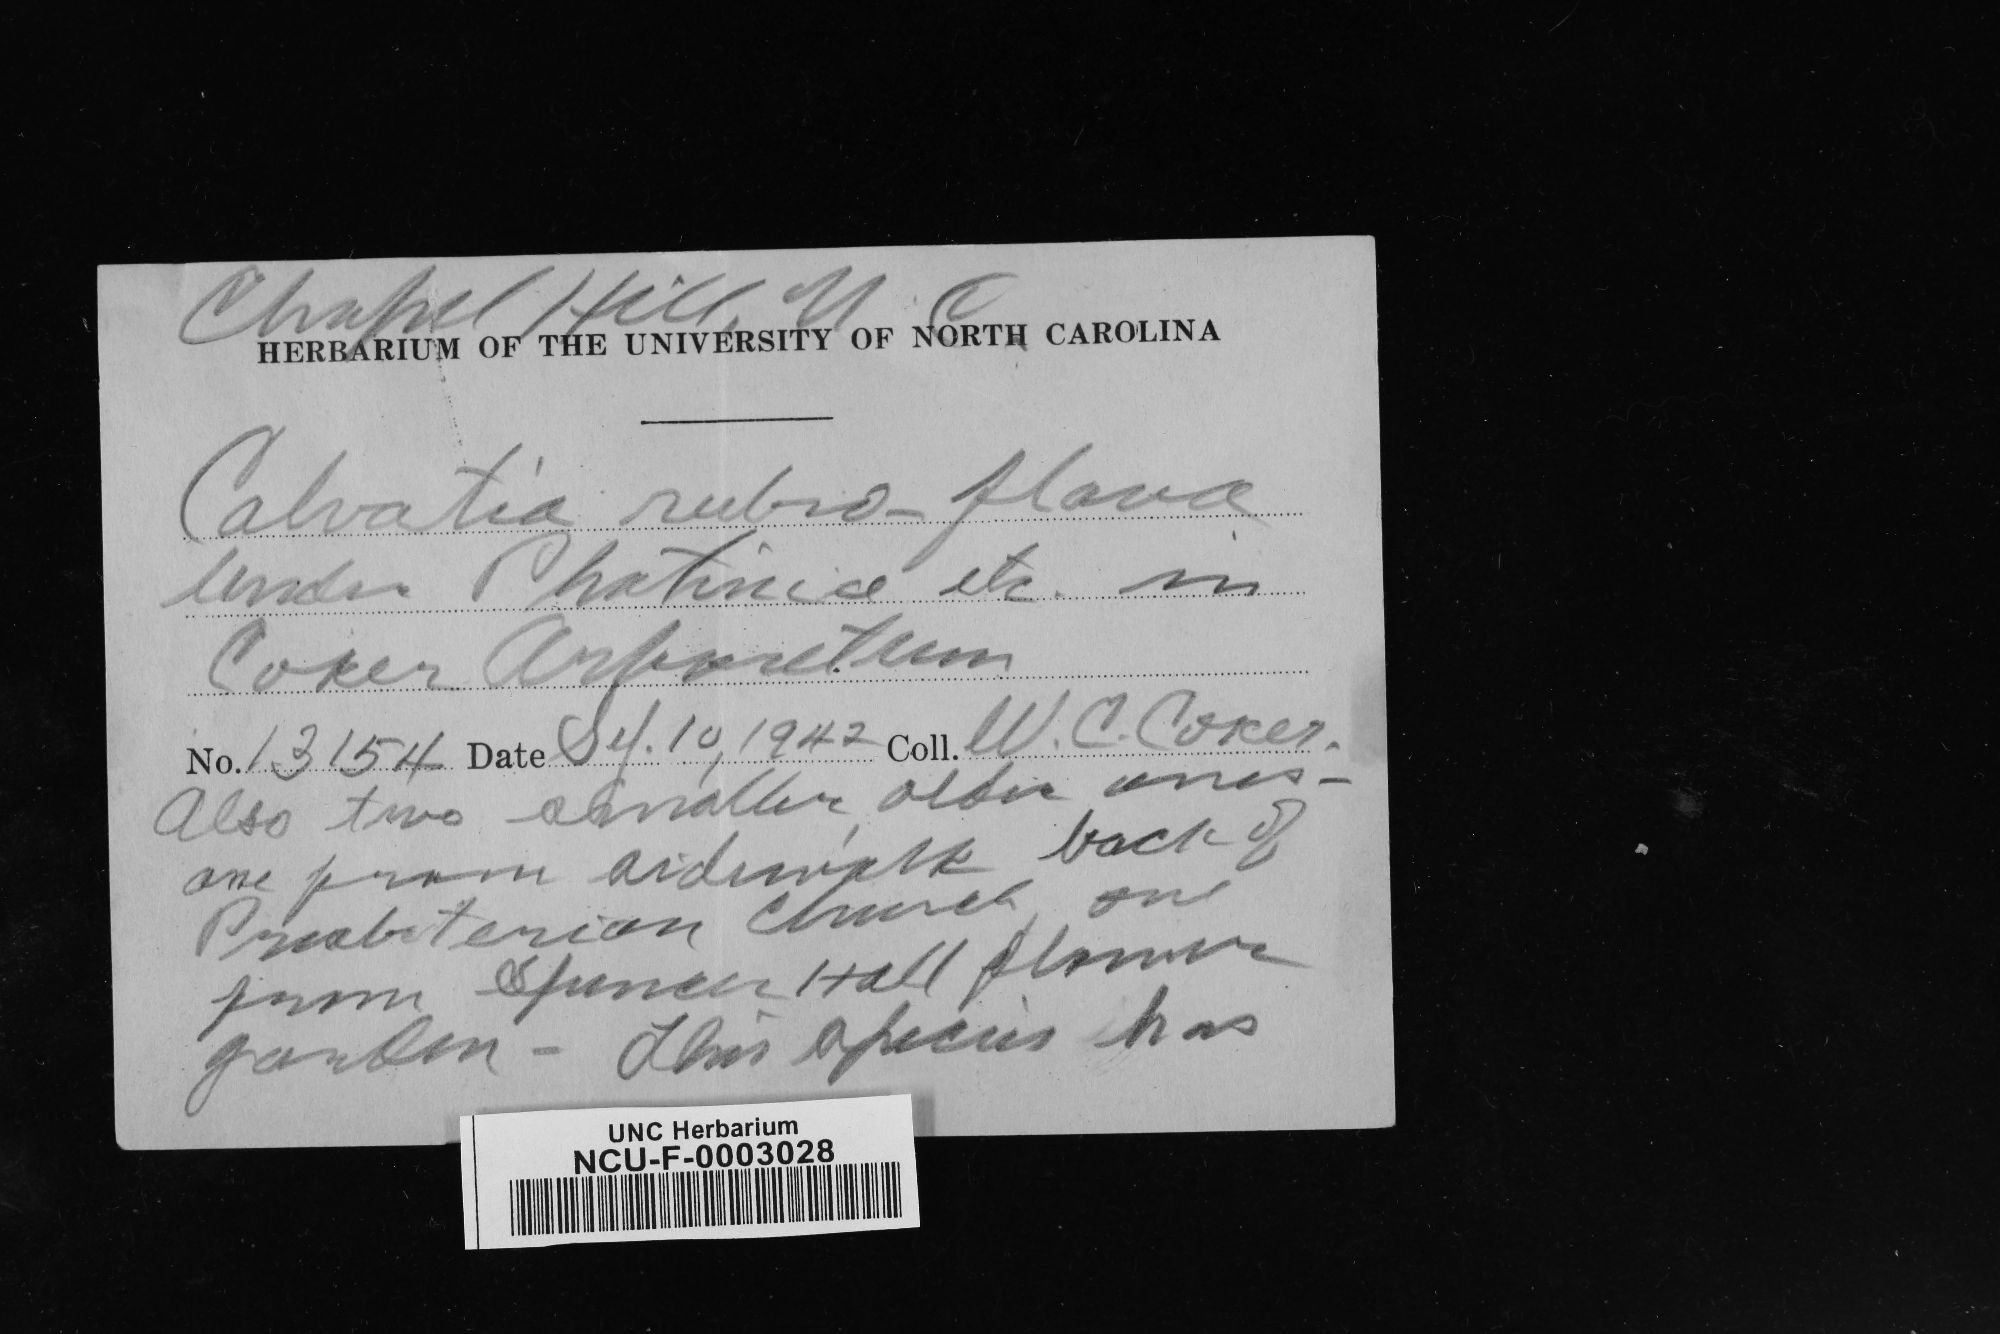 Chapel Hill, N.C.
HERBARIUM OF THE UNIVERSITY OF NORTH CAROLINA
Calvatia rubro-flava
Under Photinia etc. in
Coker Arboretum
No. 13154 Date Sep. 10, 1942 Coll. W.C. Coker.
Also two smaller, older ones -
one from sidewalk back of
Presbyterian Church, one
from Spencer Hall flower
garden - This species has
UNC Herbarium
NCU-F-0003028